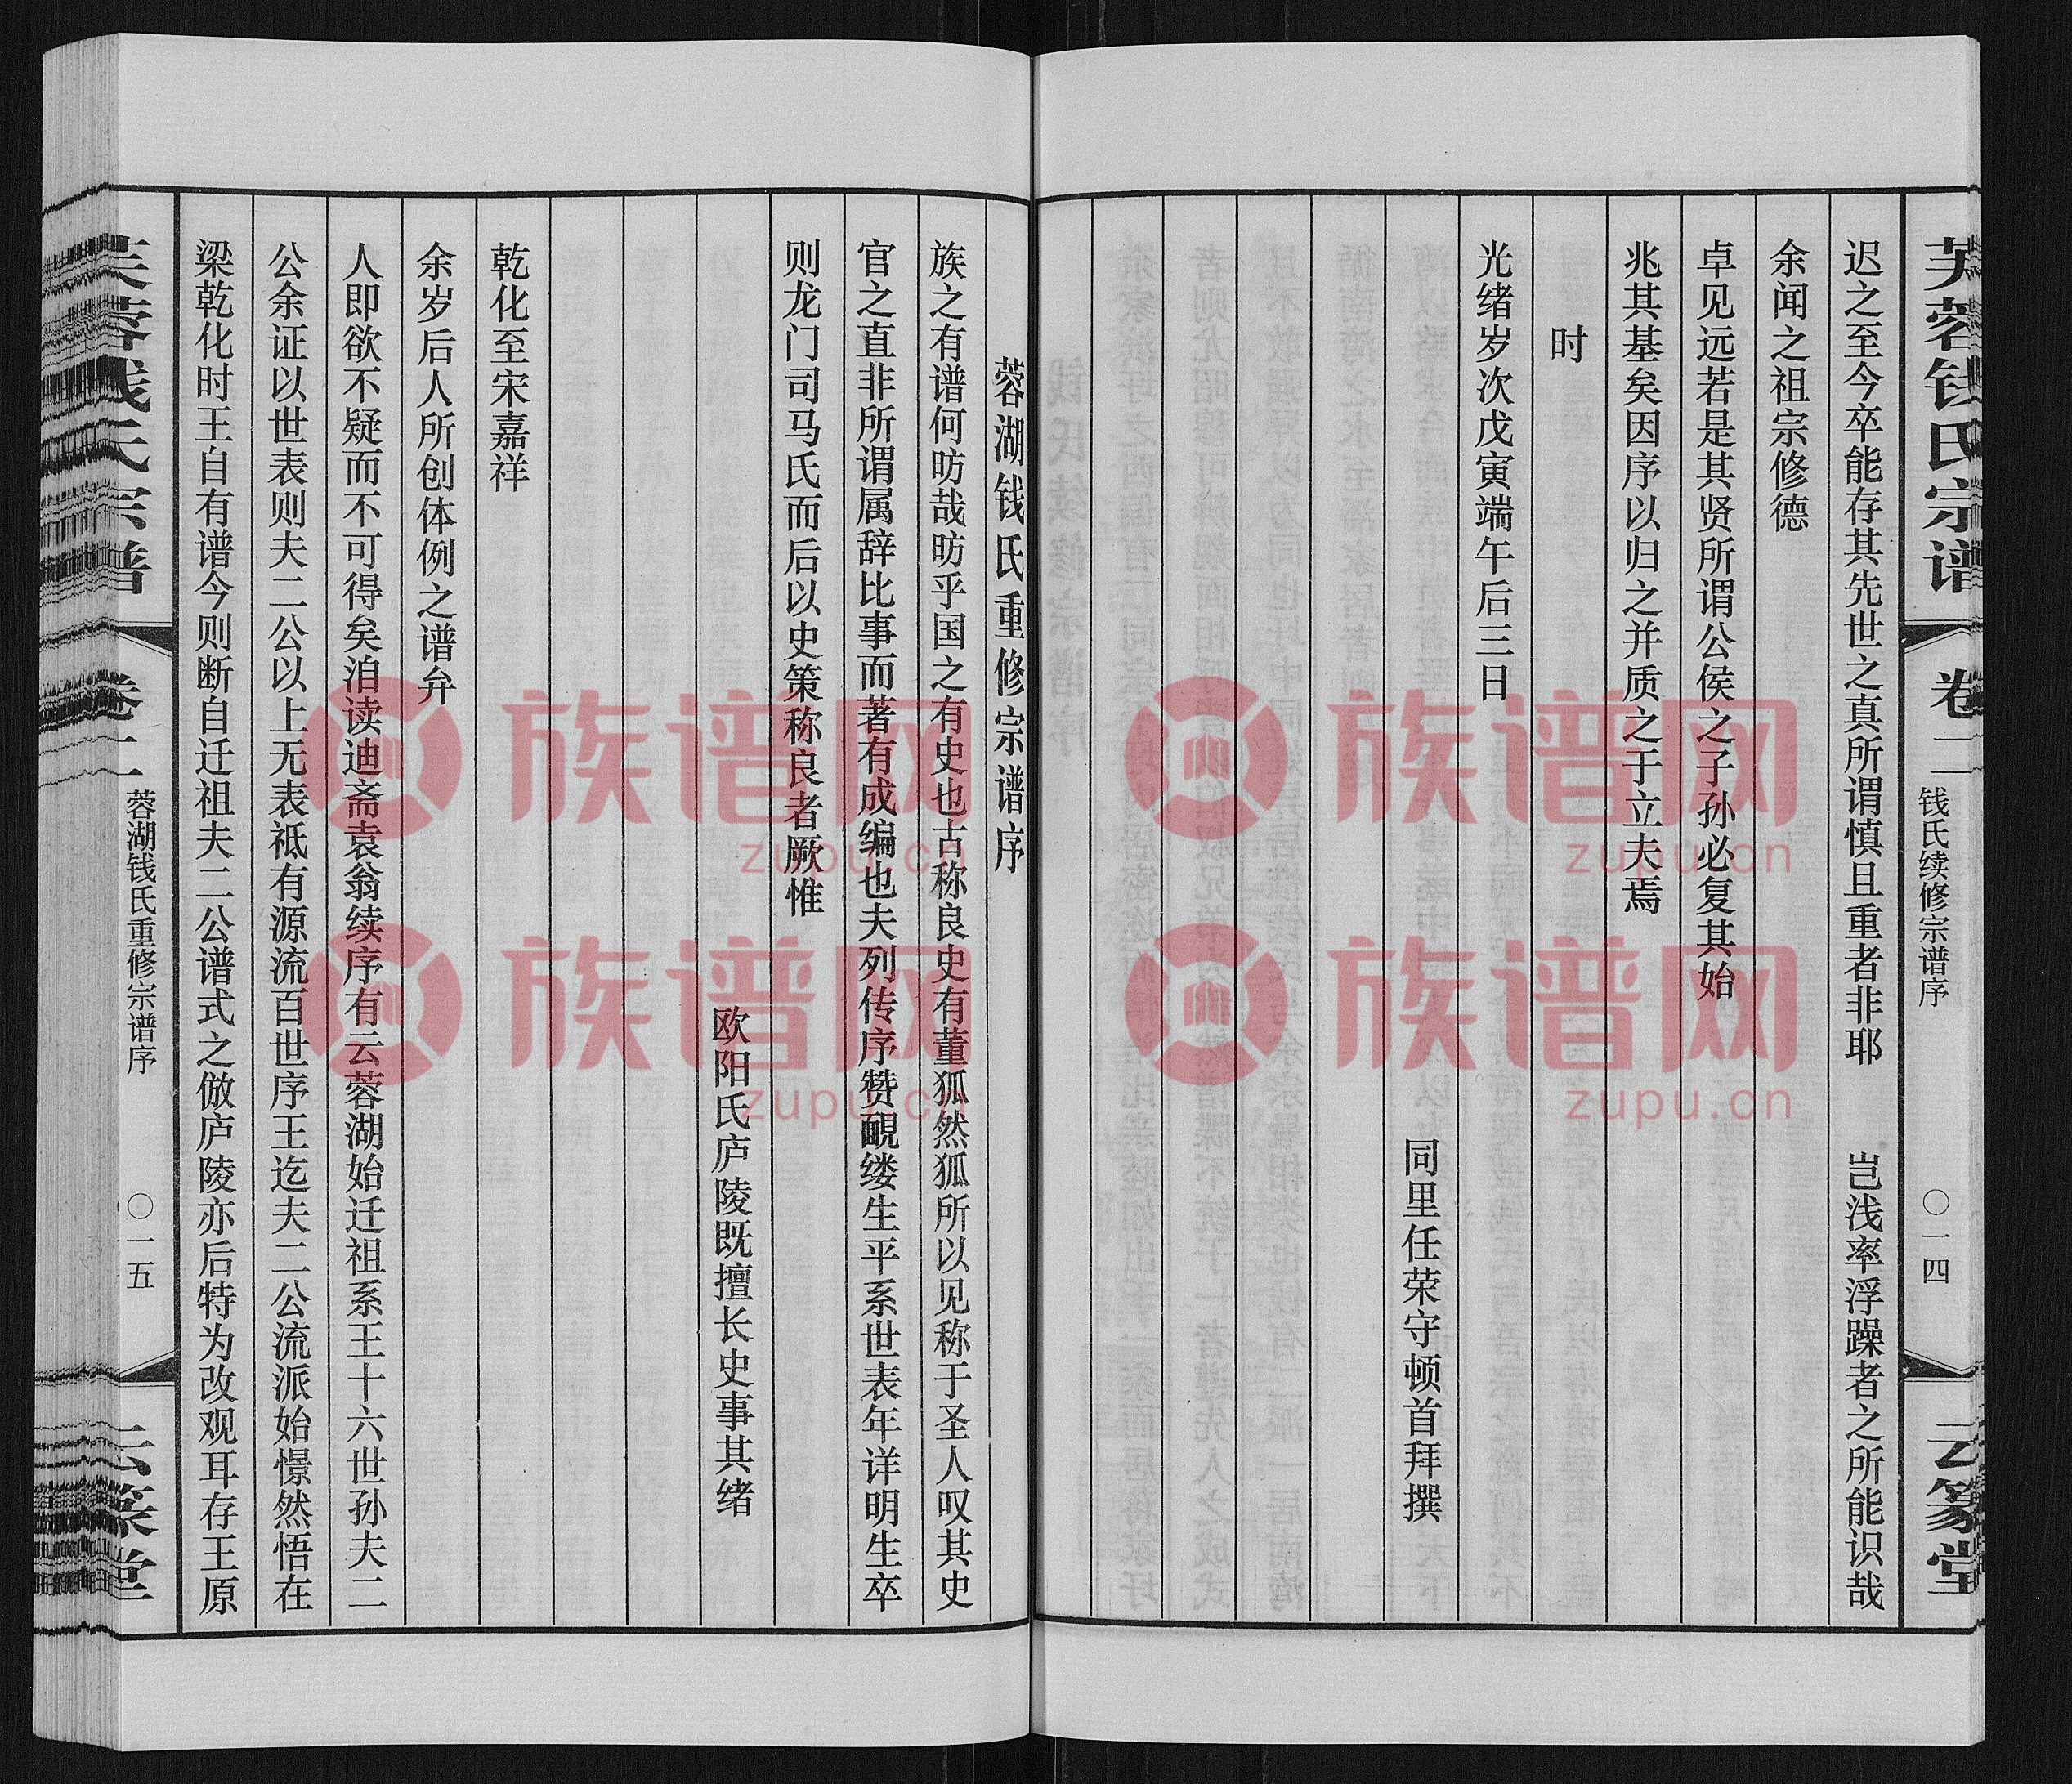 芙蓉钱氏宗谱
卷二
钱氏续修宗谱序
〇一四
云篆堂
迟之至今卒能存其先世之真所谓慎且重者非耶 岂浅率浮躁者之所能识哉
余闻之祖宗修德
卓见远若是其贤所谓公侯之子孙必复其始
兆其基矣因序以归之并质之于立夫焉
时
光绪岁次戊寅端午后三日
同里任荣守顿首拜撰
蓉湖钱氏重修宗谱序
族之有谱何昉哉昉乎国之有史也古称良史有董狐然狐所以见称于圣人叹其史
官之直非所谓属辞比事而著有成编也夫列传序赞覼缕生平系世表年详明生卒
则龙门司马氏而后以史策称良者厥惟
欧阳氏庐陵既擅长史事其绪
乾化至宋嘉祥
余岁后人所创体例之谱弁
人即欲不疑而不可得矣洎读迪斋袁翁续序有云蓉湖始迁祖系王十六世孙夫二
公余证以世表则夫二公以上无表祗有源流百世序王迄夫二公流派始憬然悟在
梁乾化时王自有谱今则断自迁祖夫二公谱式之倣庐陵亦后特为改观耳存王原
芙蓉钱氏宗谱
卷二
蓉湖钱氏重修宗谱序
〇一五
云篆堂
族谱网
zupu.cn
族谱网
zupu.cn
族谱网
zupu.cn
族谱网
zupu.cn